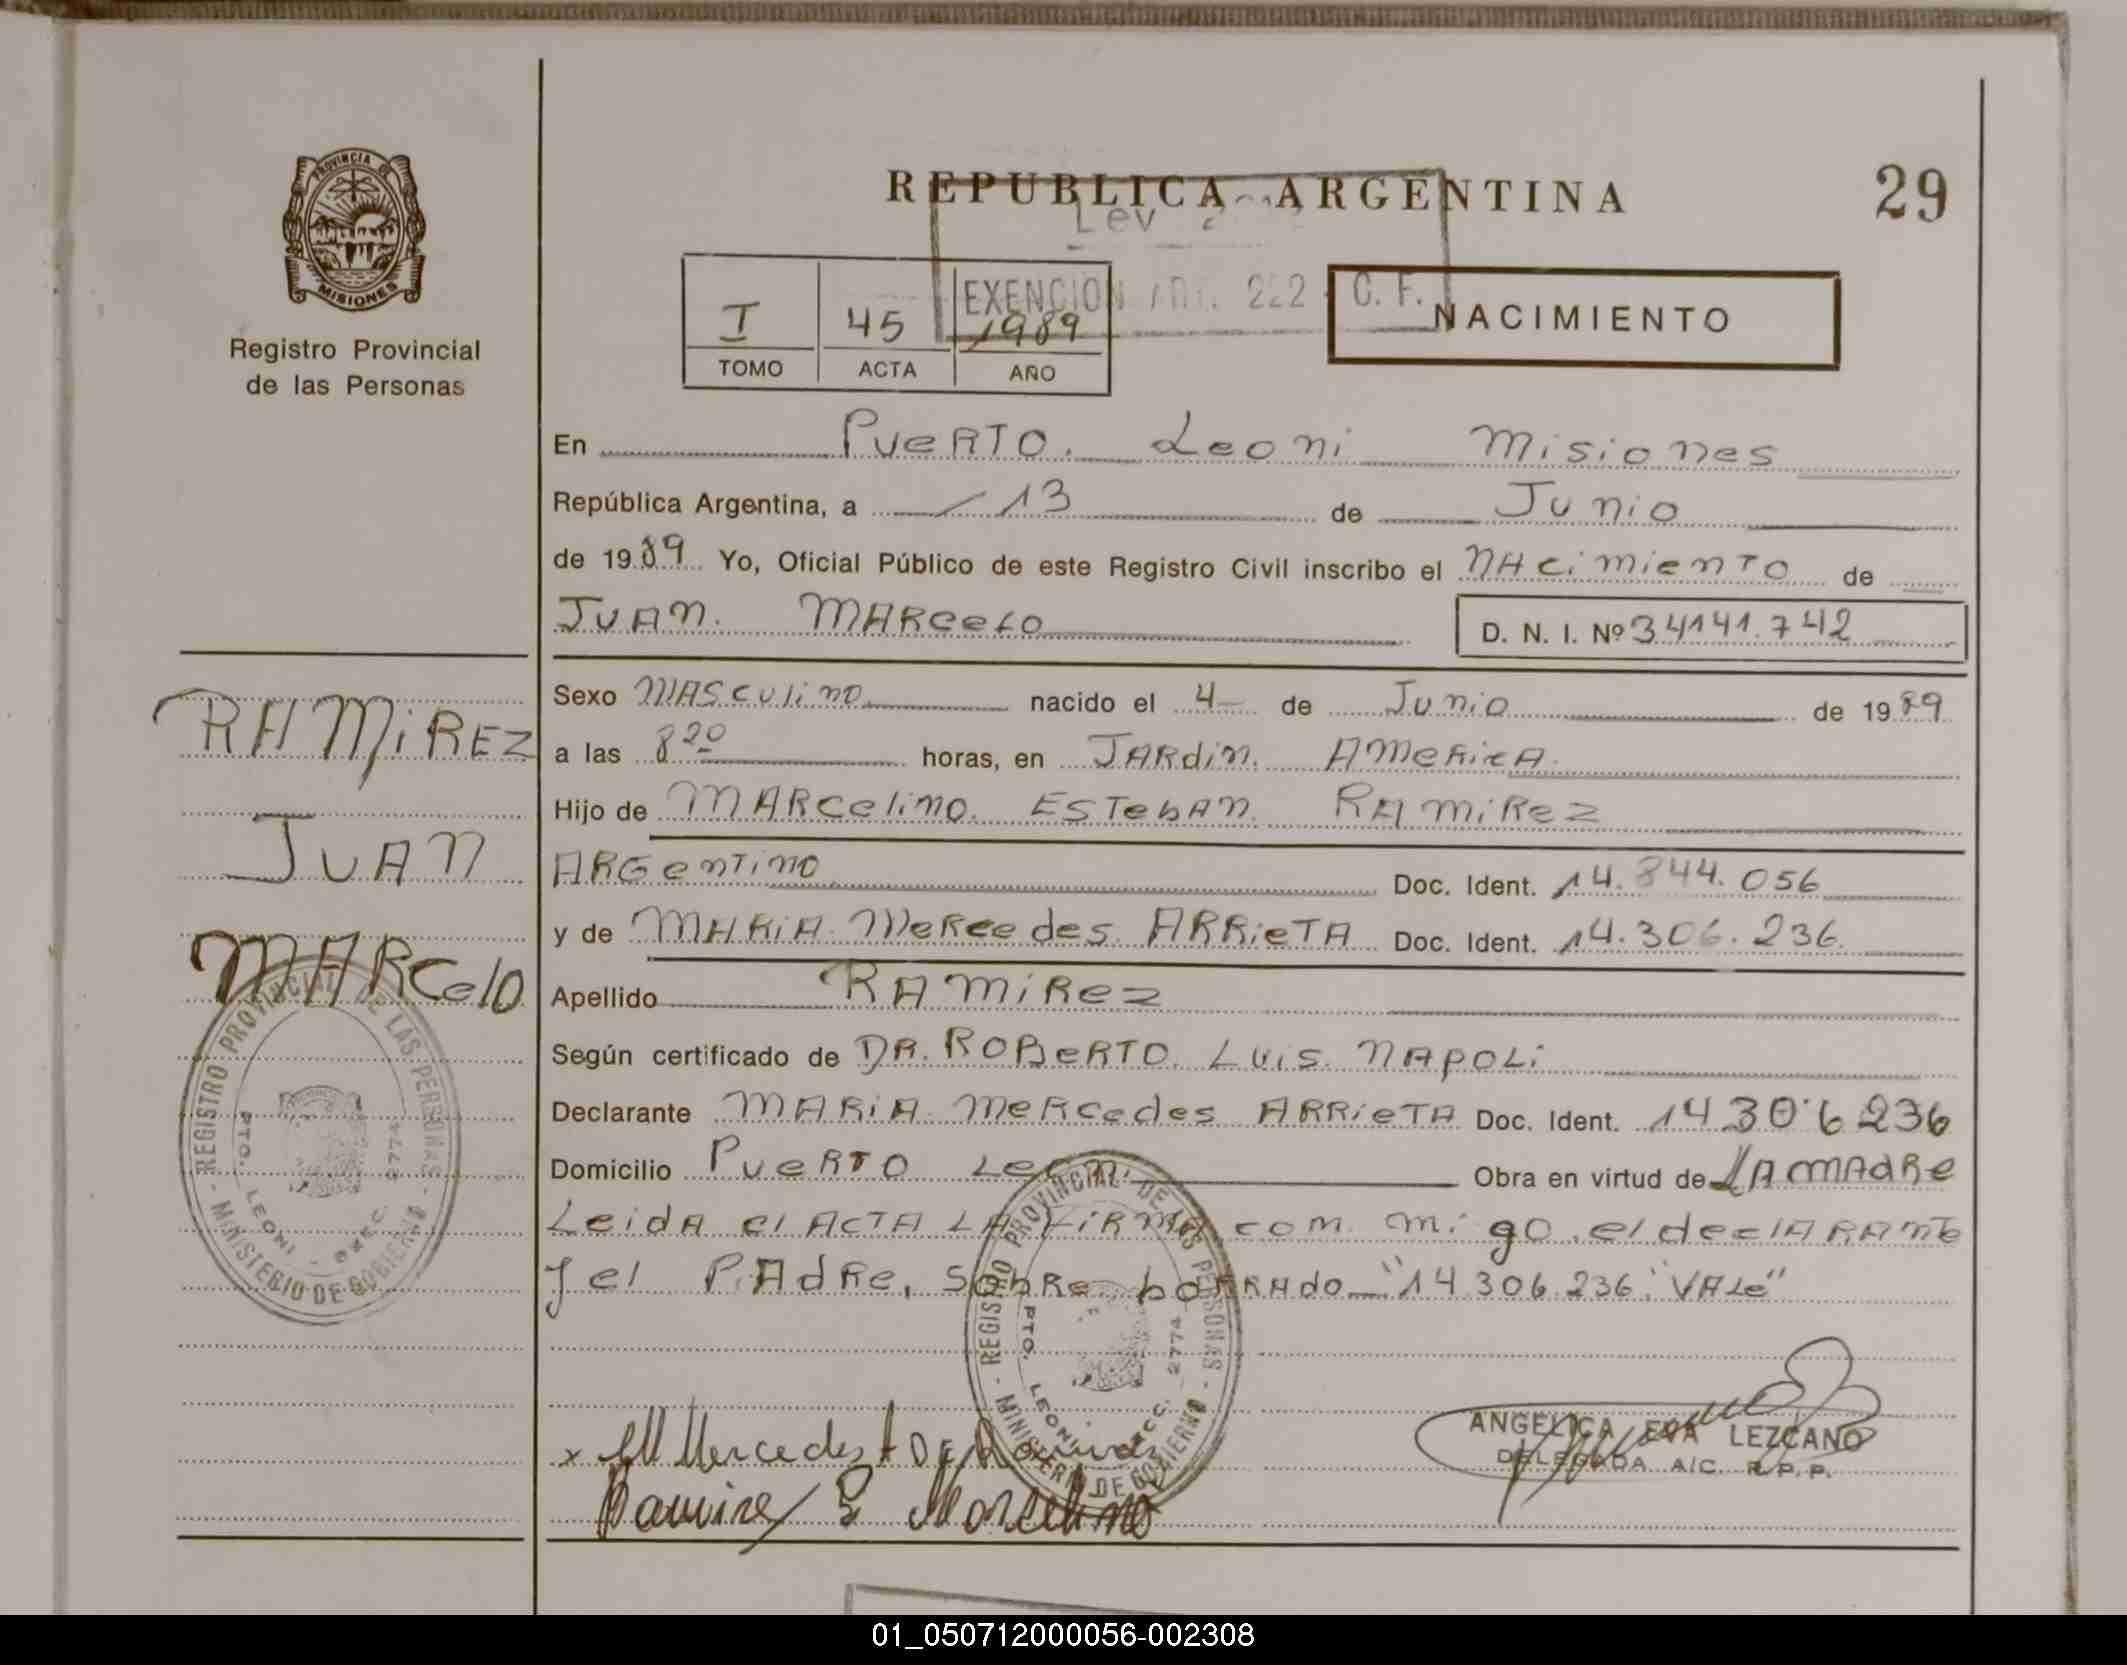 PROVINCIA DE
MISIONES
Registro Provincial
de las Personas
REPUBLICA ARGENTINA
29
Ley
EXENCION Art. 222 C. F.
I 45 1989
TOMO ACTA AÑO
NACIMIENTO
En Puerto Leoni Misiones
República Argentina, a 13 de Junio
de 1989 Yo, Oficial Público de este Registro Civil inscribo el nacimiento de
Juan Marcelo D. N. I. Nº 34141.742
Sexo Masculino nacido el 4 de Junio de 1989
a las 8 20 horas, en Jardin America
Hijo de Marcelino Esteban Ramirez
Argentino Doc. Ident. 14.844.056
y de Maria Mercedes Arrieta Doc. Ident. 14.306.236
Apellido Ramirez
Según certificado de Dr. Roberto Luis Napoli
Declarante Maria Mercedes Arrieta Doc. Ident. 14306236
Domicilio Puerto Leoni Obra en virtud de La madre
Leida el acta la firma com migo el declarante
y el Padre, sobre borrado "14.306.236" "Vale"
RAMIREZ
JUAN
MARcelo
REGISTRO PROVINCIAL DE LAS PERSONAS - MINISTERIO DE GOBIERNO -
PTO. LEONI - SECC. 2774
REGISTRO PROVINCIAL DE LAS PERSONAS - MINISTERIO DE GOBIERNO -
PTO. LEONI - SECC. 2774
x M Mercedes A DE Ramirez
Ramirez E Marcelino
ANGELICA EVA LEZCANO
DELEGADA A/C. R.P.P.
01_050712000056-002308